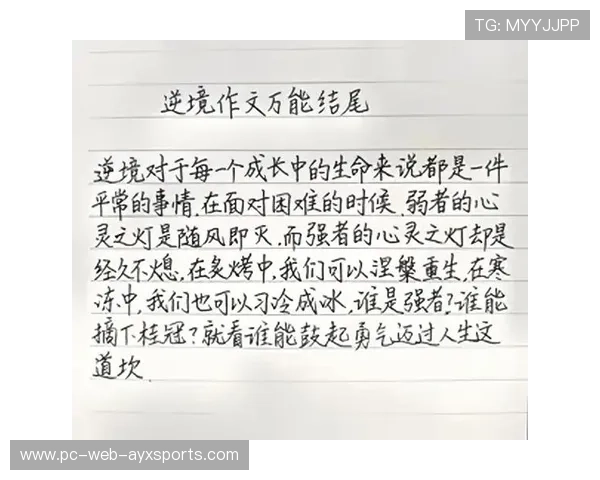 TG: MYYJJPP
逆境作文万能结尾
逆境对于每一个成长中的生命来说都是一件
平常的事情.在面对困难的时候.弱者的心
灵之灯是随风即灭.而强者的心灵之灯却是
经久不熄.在炙烤中,我们可以涅槃重生.在寒
冻中,我们也可以习冷成冰,谁是强者?谁能
摘下桂冠?就看谁能鼓起勇气迈过人生这
道坎.
www.pc-web-ayxsports.com